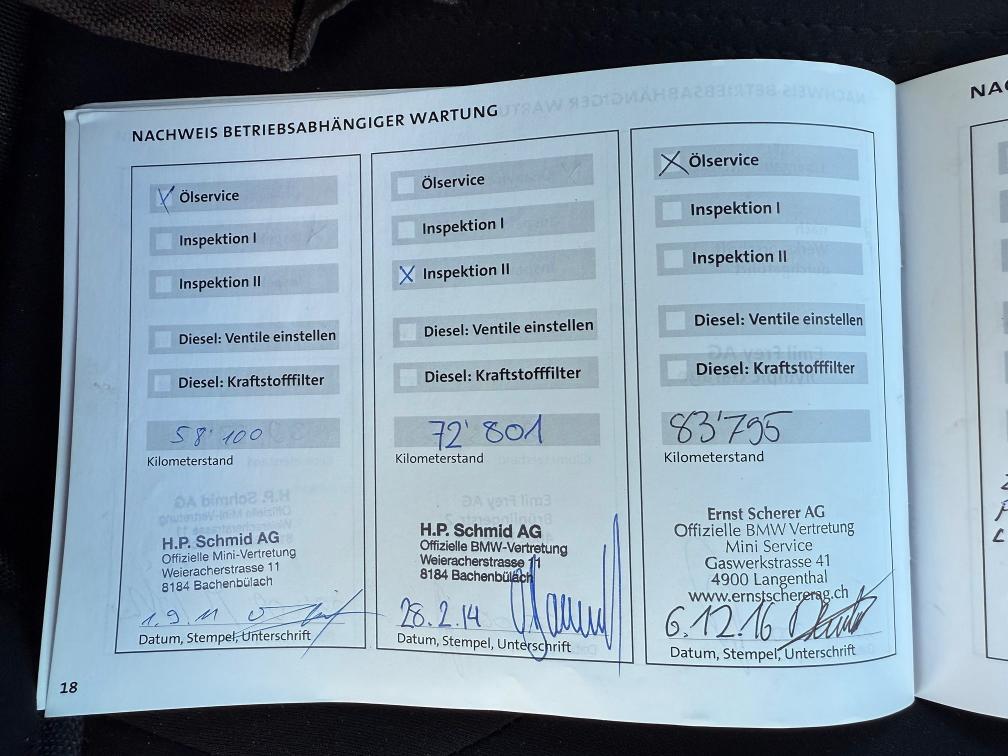 NACHWEIS BETRIEBSABHÄNGIGER WARTUNG
Ölservice
Inspektion I
Inspektion II
Diesel: Ventile einstellen
Diesel: Kraftstofffilter
58'100
Kilometerstand
H.P. Schmid AG
Offizielle Mini-Vertretung
Weieracherstrasse 11
8184 Bachenbülach
1.9.11
Datum, Stempel, Unterschrift
Ölservice
Inspektion I
Inspektion II
Diesel: Ventile einstellen
Diesel: Kraftstofffilter
72'801
Kilometerstand
H.P. Schmid AG
Offizielle BMW-Vertretung
Weieracherstrasse 11
8184 Bachenbülach
28.2.14
Datum, Stempel, Unterschrift
Ölservice
Inspektion I
Inspektion II
Diesel: Ventile einstellen
Diesel: Kraftstofffilter
83'795
Kilometerstand
Ernst Scherer AG
Offizielle BMW Vertretung
Mini Service
Gaswerkstrasse 41
4900 Langenthal
www.ernstschererag.ch
6.12.16
Datum, Stempel, Unterschrift
18
NA